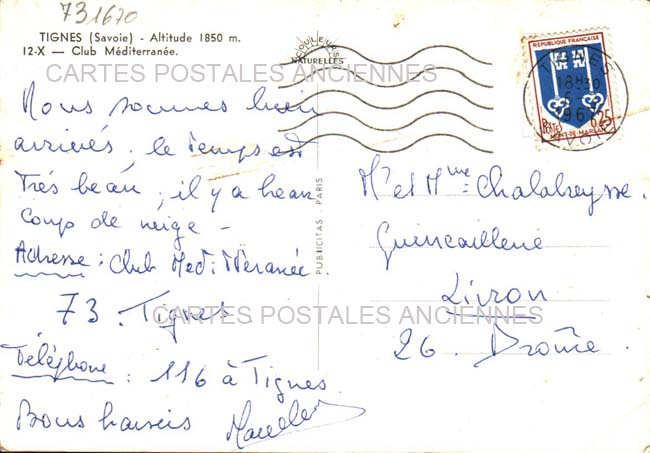 731670
TIGNES (Savoie) - Altitude 1850 m.
12-X — Club Méditerranée.
COULEURS
NATURELLES
CARTES POSTALES ANCIENNES
Nous sommes bien
arrivés, le temps est
très beau, il y a beau
coup de neige -
Adresse : Club Méditerranée
73. Tignes
CARTES POSTALES ANCIENNES
Téléphone : 116 à Tignes
Bons baisers
PUBLICITAS - PARIS
REPUBLIQUE FRANÇAISE
POSTES
0,25
MONT-DE-MARSAN
18H30
Mr et Mme Chalabreysse.
Quincaillerie
Livron
26. Drôme.